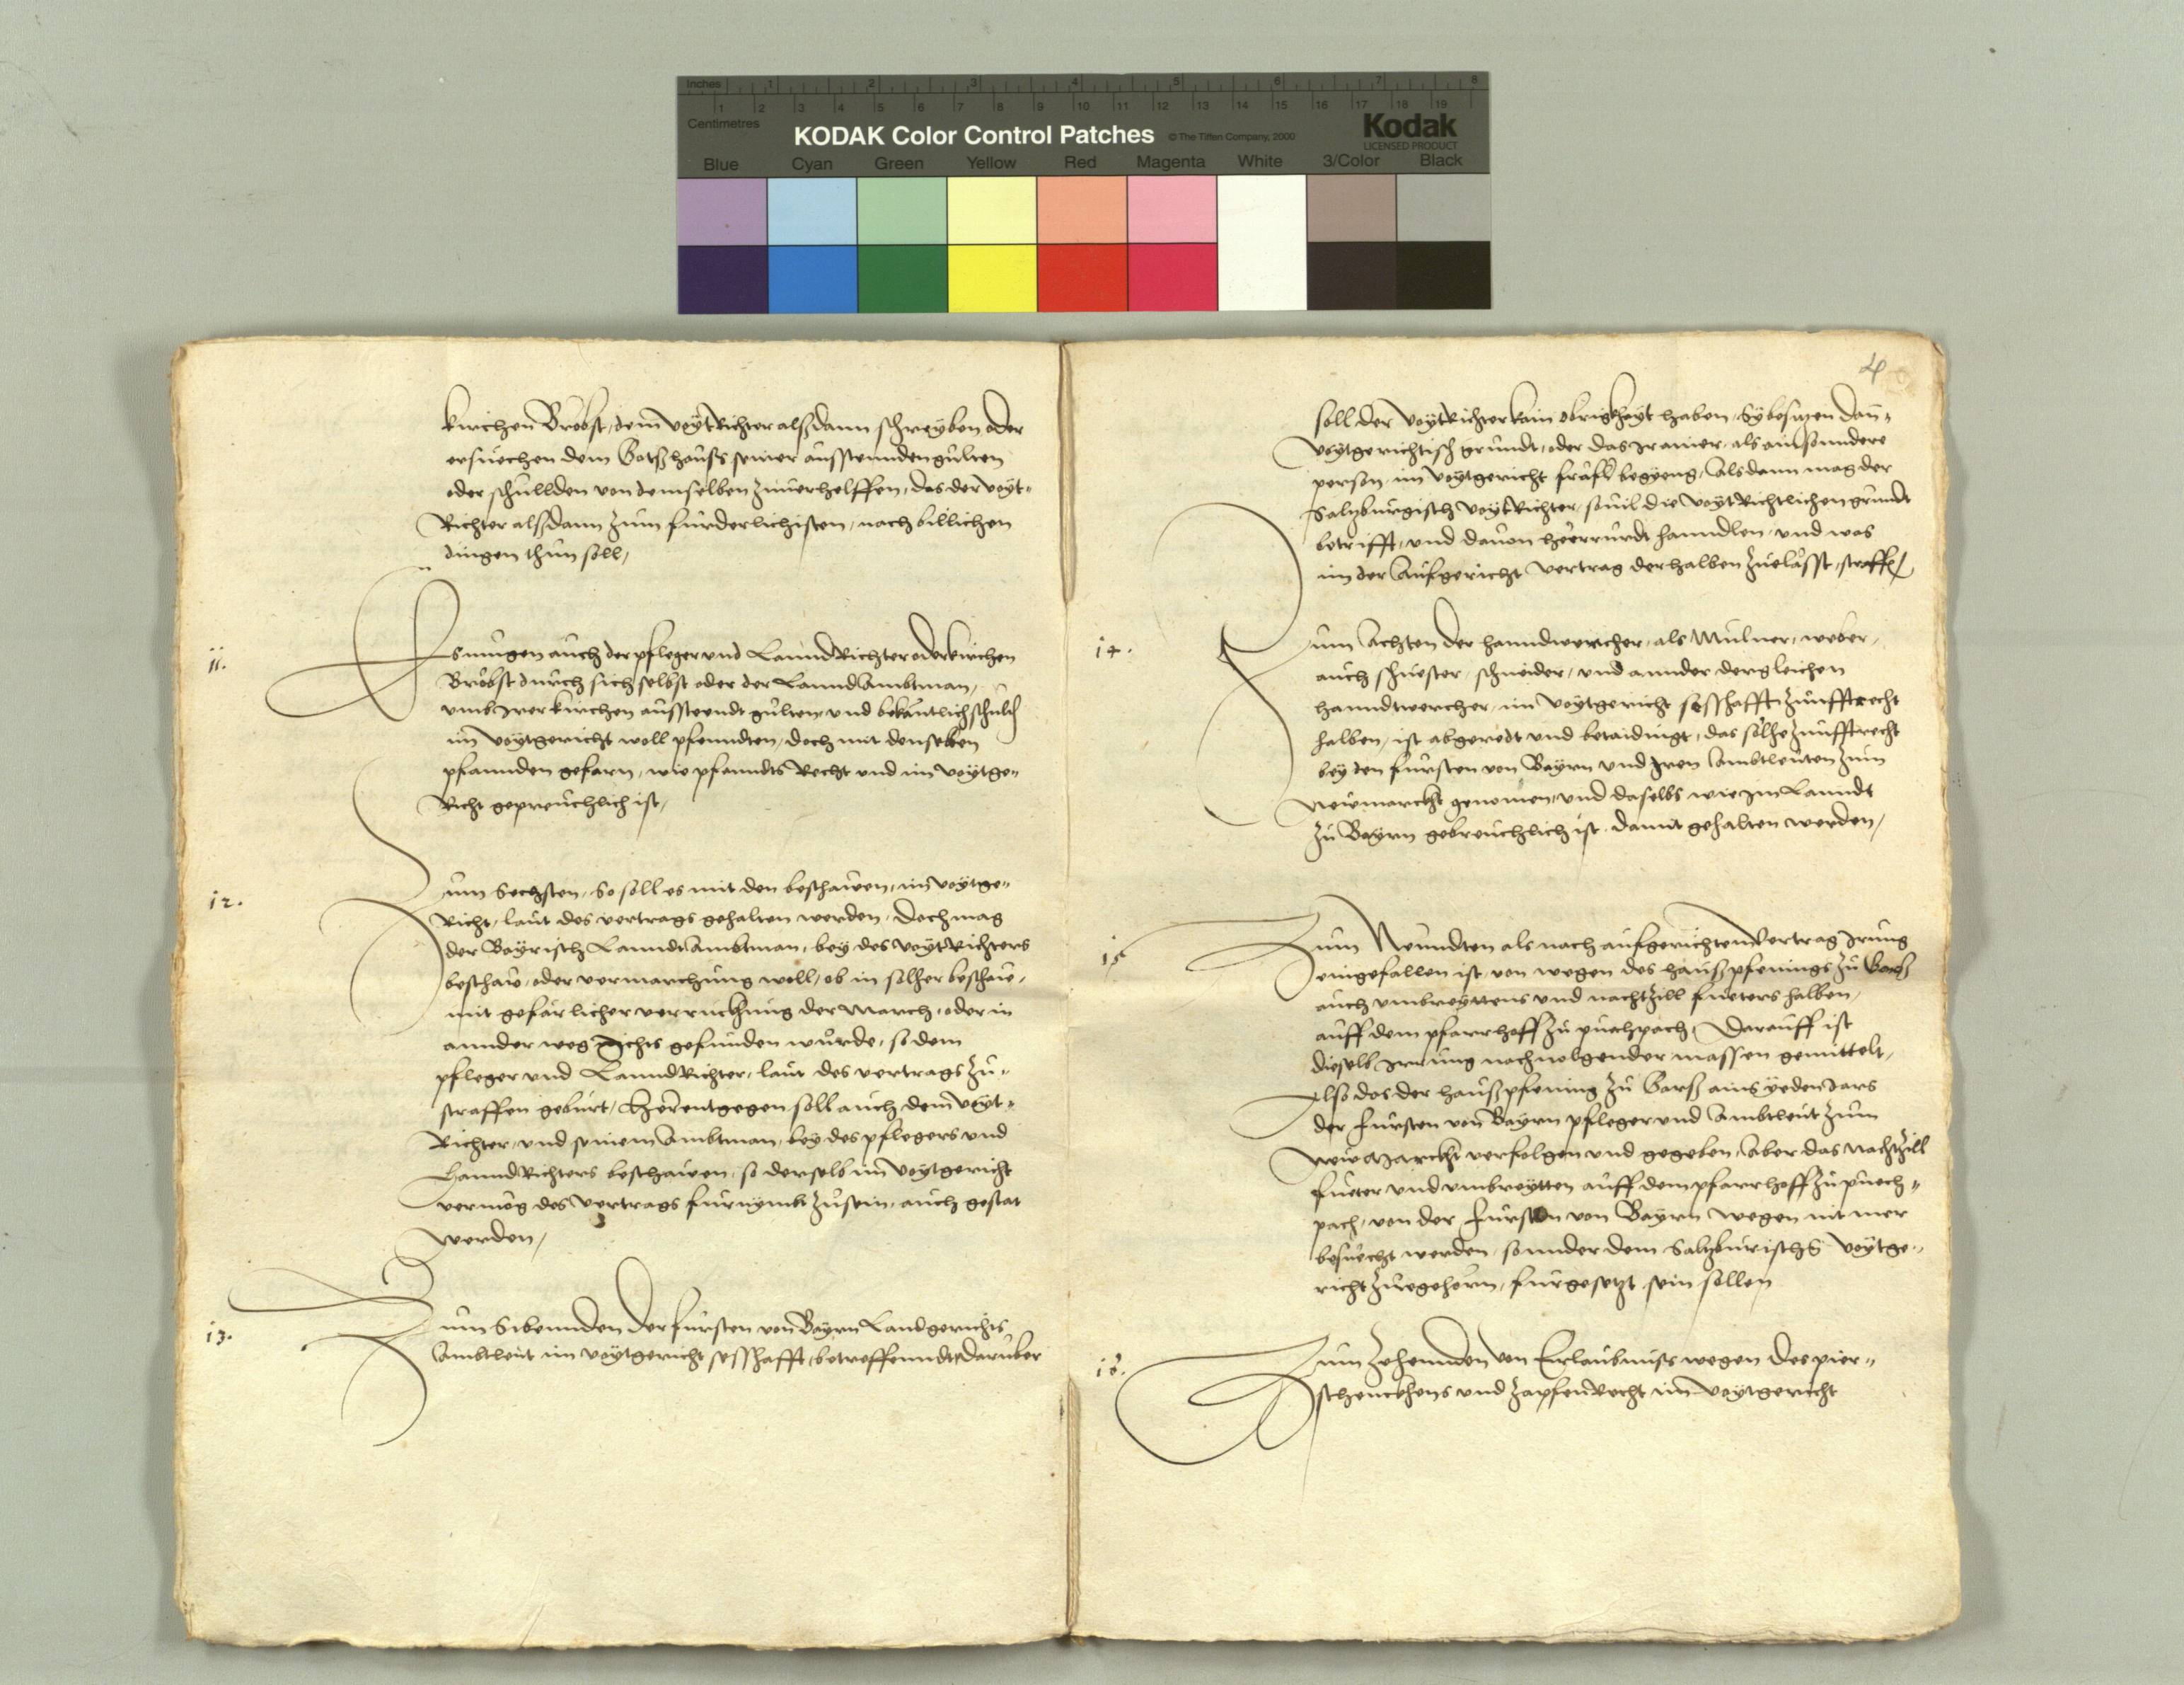 Inches 1 2 3 4 5 6 7 8
Centimetres 1 2 3 4 5 6 7 8 9 10 11 12 13 14 15 16 17 18 19
KODAK Color Control Patches © The Tiffen Company, 2000 Kodak
LICENSED PRODUCT
Blue Cyan Green Yellow Red Magenta White 3/Color Black
kirchen Brobst, dem voÿtRichter alßdann schreyben oder
ersuechen dem Gotzhauss seiner aussteunden gulten
oder schullden von demselben zuuerhelffen, das der voyt-
Richter alßdann zum furderlichisten, nach billichen
dingen thun soll,
11.
Es mugen auch der pfleger und LanndRichter oder kirchen
Brobst durch sich selbst oder der LanndAmbtman,
umb Irer kirchen aussteendt gulten, und bekantlich schuld
im voytgericht woll pfenndten, doch mit denselben
pfannden gefarn, wie pfanndts Recht und im voytge-
Richt gepreuchlich ist,
12.
Zum Sechsten, So soll es mit den beschawen, im voytge-
Richt, laut des vertrags gehalten werden, Doch mag
der Bayrisch LanndtAmbtman, bey des voytRichters
beschaw, oder vermarchung woll, ob in solher beschaw,
mit gefarlicher verruckhung der March, oder in
annder weg Ichts gefunden wurde, so dem
pfleger und LanndRichter, laut des vertrags zu-
straffen geburt, Herentgegen soll auch dem voyt-
Richter, und seinem Ambtman, bey des pflegers und
LanndRichters beschawen, so derselb im voytgericht
vermog des vertrags furnymbt zusein, auch gestat
werden,
13.
Zum Sibennden der fursten von Bayrn Landgerichts
Ambtleut im voytgericht sesshafft, betreffenndt, Daruber
4
soll der voytRichter kain obrigkhayt haben, Sy besitzen dan-
voytgerichtisch grundt, oder das Ir ainer, als ain sonndere
person, im voytgericht begieng, Alsdann mag der
Saltzburgisch voytRichter, souil die voytRichtlichen grundt
betrifft, und dauon herrurdt hanndlen, und was
im der Aufgericht vertrag derhalben zuelasst, straffen
14.
Zum Achten der hanndwercher, als Mulner, weber,
auch schuester, schneider, und annder dergleichen
hanndtwercher, im voytgericht sesshafft, zunfftrecht
halben, ist abgeredt und betaidingt, das solhe zunfftrecht
bey den fursten von Bayrn und Iren Ambtleuten zum
Newmarckht genomen, und daselbs wie im Lanndt
zu Bayrn gebreuchlich ist, damit gehalten werden,
15
Zum Neundten als nach aufgerichtem Vertrag Irung
eingefallen ist, von wegen des hausspfenings zu Garss
auch umbreyttens und nachtzill fueters halben,
auff dem pfarrhoff zu puechpach, Darauff ist
dieselb Irrung nachuolgender massen gemittelt,
Also das der hausspfening zu Garss ains yeden Jars
der fursten von Bayrn pfleger und Ambtleut zum
NewMarckht verfolgen und gegeben, Aber das Nachtzill
fueter und umbreytten auff dem pfarrhoff zu puech-
pach, von der Fursten von Bayrn wegen nit mer
besuecht werden, sonnder dem Saltzburischs voytge-
richt zuegehorn, furgesetzt sein sollen
16.
Zum zehennden von Erlaubnuss wegen des pier-
schenckhens und zapfenRecht im voytgericht